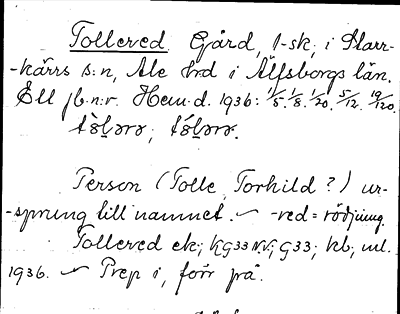 Tollered Gård, 1-sk, i Starr-
-kärrs s:n, Ale hrd i Älfsborgs län.
Ell jb.n:r. Hem.d. 1936: 1/5. 1/8. 1/20. 5/12. 19/120.
Person (Tolle, Torhild?) ur-
-sprung till namnet. ~ -red = rödjning.
Tollered ek; kg33 N.V; g33; kb, ml.
1936. ~ Prep i, förr på.